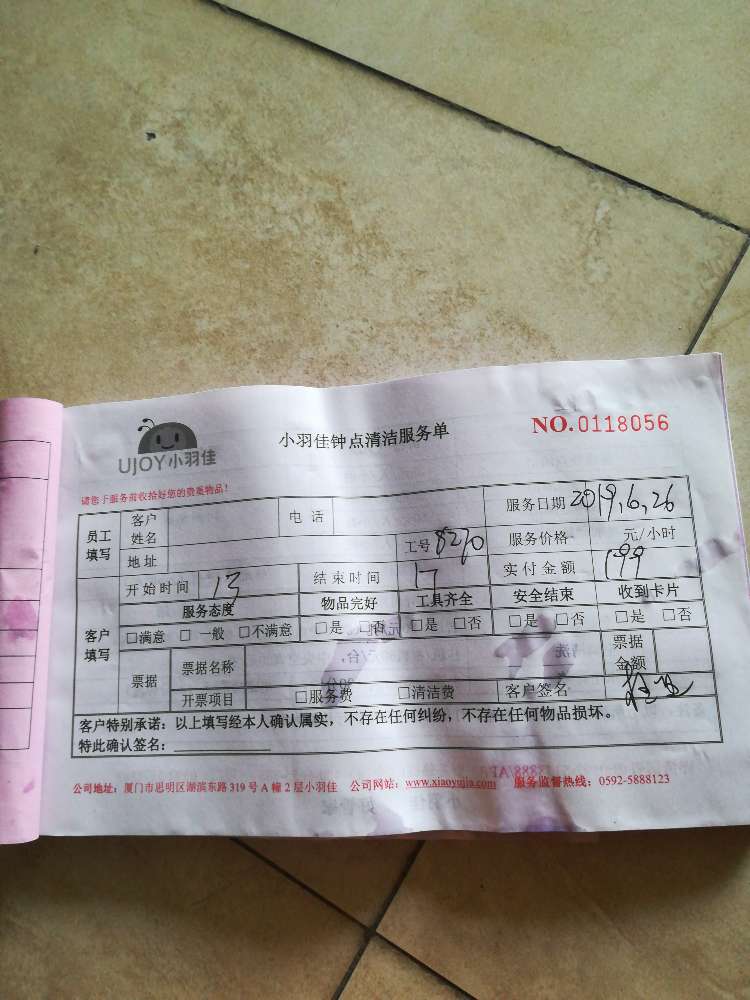 UJOY小羽佳
小羽佳钟点清洁服务单
NO.0118056
请您于服务前收拾好您的贵重物品!
员工填写 客户姓名 电话 服务日期 2019.6.26
地址 工号 8270 服务价格 元/小时
客户填写 开始时间 13 结束时间 17 实付金额 199
服务态度 物品完好 工具齐全 安全结束 收到卡片
□满意 □一般 □不满意 □是 □否 □是 □否 □是 □否 □是 □否
票据 票据名称 票据金额
开票项目 □服务费 □清洁费 客户签名
客户特别承诺：以上填写经本人确认属实，不存在任何纠纷，不存在任何物品损坏。
特此确认签名：
公司地址：厦门市思明区湖滨东路319号A幢2层小羽佳 公司网站：www.xiaoyujia.com 服务监督热线：0592-5888123